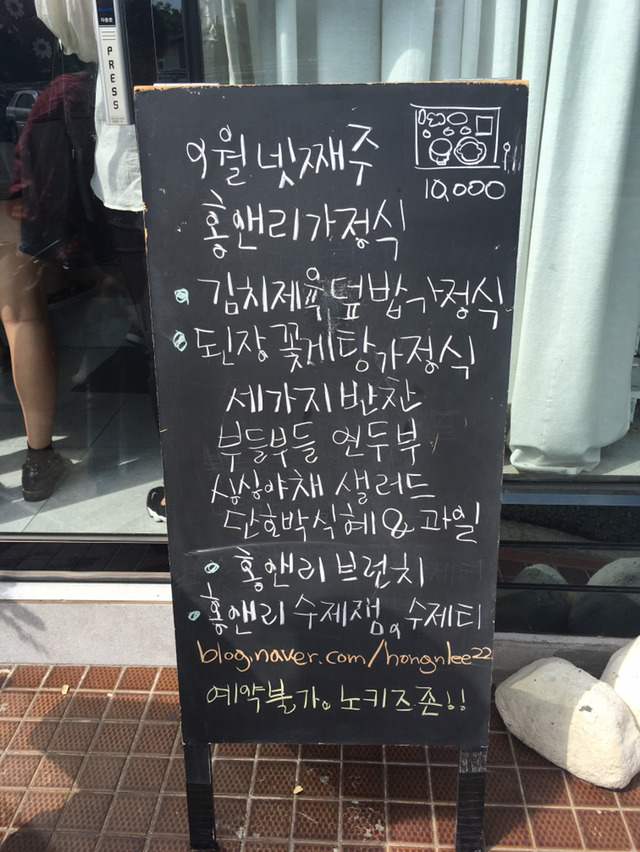 PRESS
9월 넷째주
10,000
홍앤리가정식
김치제육덮밥가정식
된장꽃게탕가정식
세가지반찬
부들부들 연두부
싱싱야채 샐러드
단호박식혜&과일
홍앤리브런치
홍앤리 수제잼&수제티
blog.naver.com/hongnlee22
예약불가. 노키즈존!!